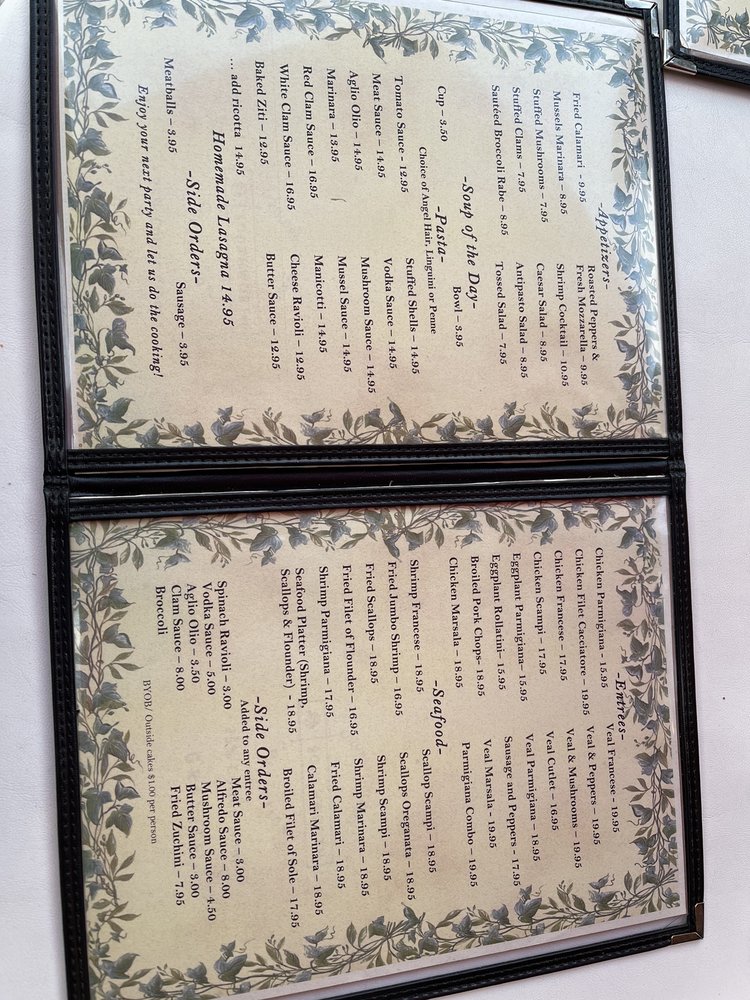 -Appetizers-
Fried Calamari - 9.95
Mussels Marinara – 8.95
Stuffed Mushrooms – 7.95
Stuffed Clams – 7.95
Sautéed Broccoli Rabe – 8.95
Roasted Peppers &
Fresh Mozzarella – 9.95
Shrimp Cocktail – 10.95
Caesar Salad – 8.95
Antipasto Salad – 8.95
Tossed Salad – 7.95
-Soup of the Day-
Cup – 3.50
Bowl – 3.95
-Pasta-
Choice of Angel Hair, Linguini or Penne
Tomato Sauce - 12.95
Meat Sauce – 14.95
Aglio Olio – 14.95
Marinara – 13.95
Red Clam Sauce – 16.95
White Clam Sauce – 16.95
Baked Ziti – 12.95
.... add ricotta 14.95
Stuffed Shells – 14.95
Vodka Sauce – 14.95
Mushroom Sauce – 14.95
Mussel Sauce – 14.95
Manicotti – 14.95
Cheese Ravioli – 12.95
Butter Sauce – 12.95
Homemade Lasagna 14.95
-Side Orders-
Meatballs – 3.95
Sausage – 3.95
Enjoy your next party and let us do the cooking!
-Entrées-
Chicken Parmigiana - 15.95
Chicken Filet Cacciatore – 19.95
Chicken Francese – 17.95
Chicken Scampi – 17.95
Eggplant Parmigiana– 15.95
Eggplant Rollatini- 15.95
Broiled Pork Chops- 18.95
Chicken Marsala - 18.95
Veal Francese - 19.95
Veal & Peppers – 19.95
Veal & Mushrooms – 19.95
Veal Cutlet – 16.95
Veal Parmigiana – 18.95
Sausage and Peppers - 17.95
Veal Marsala - 19.95
Parmigiana Combo – 19.95
-Seafood-
Shrimp Francese – 18.95
Fried Jumbo Shrimp – 16.95
Fried Scallops – 18.95
Fried Filet of Flounder – 16.95
Shrimp Parmigiana – 17.95
Seafood Platter (Shrimp,
Scallops & Flounder) - 18.95
Scallop Scampi – 18.95
Scallops Oreganata – 18.95
Shrimp Scampi – 18.95
Shrimp Marinara – 18.95
Fried Calamari – 18.95
Calamari Marinara – 18.95
Broiled Filet of Sole – 17.95
-Side Orders-
Added to any entree
Spinach Ravioli – 3.00
Vodka Sauce – 5.00
Aglio Olio – 3.50
Clam Sauce – 8.00
Broccoli
Meat Sauce – 3.00
Alfredo Sauce – 8.00
Mushroom Sauce – 4.50
Butter Sauce – 3.00
Fried Zuchini – 7.95
BYOB/ Outside cakes $1.00 per person